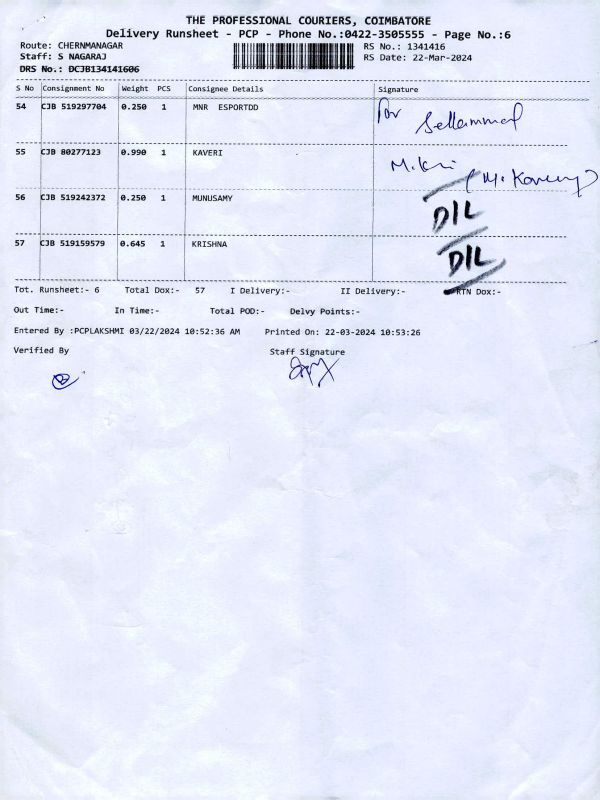 THE PROFESSIONAL COURIERS, COIMBATORE
Delivery Runsheet - PCP - Phone No.:0422-3505555 - Page No.:6
Route: CHERNMANAGAR RS No.: 1341416
Staff: S NAGARAJ RS Date: 22-Mar-2024
DRS No.: DCJB134141606
S No Consignment No Weight PCS Consignee Details Signature
54 CJB 519297704 0.250 1 MNR ESPORTDD For Sellammal
55 CJB 80277123 0.990 1 KAVERI (M. Kavery)
56 CJB 519242372 0.250 1 MUNUSAMY D/L
57 CJB 519159579 0.645 1 KRISHNA D/L
Tot. Runsheet:- 6 Total Dox:- 57 I Delivery:- II Delivery:- RTN Dox:-
Out Time:- In Time:- Total POD:- Delvy Points:-
Entered By :PCPLAKSHMI 03/22/2024 10:52:36 AM Printed On: 22-03-2024 10:53:26
Verified By Staff Signature